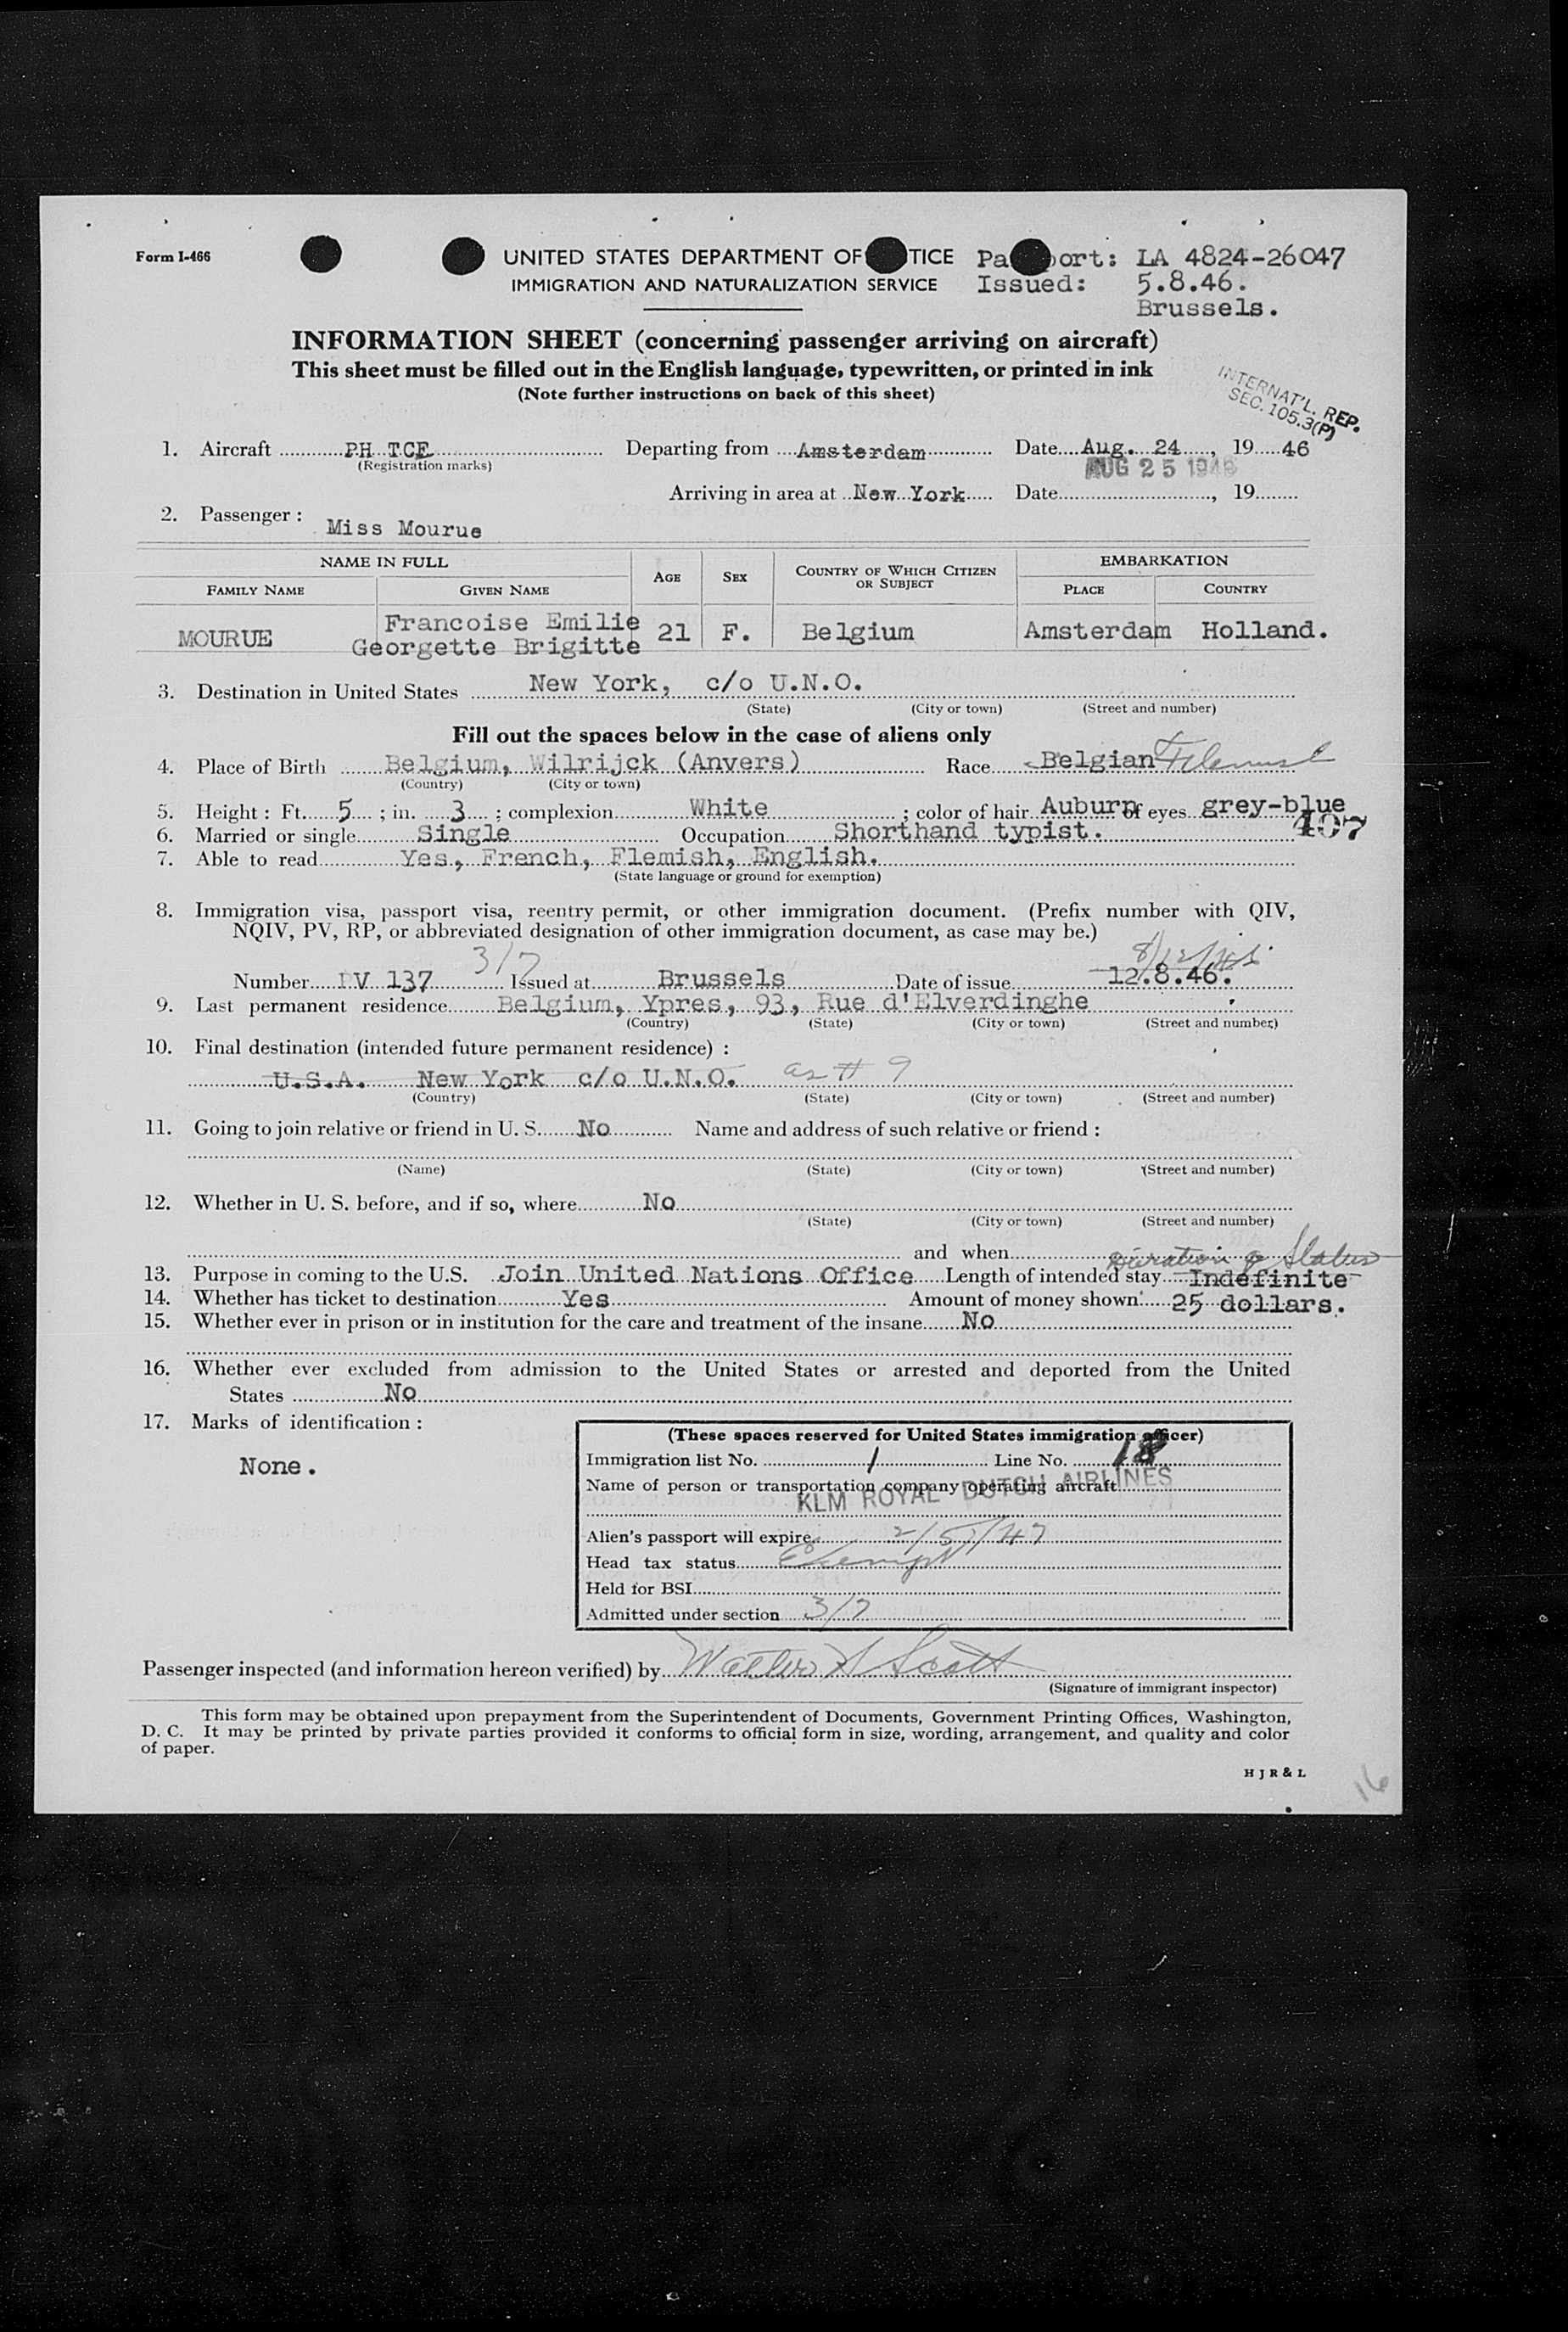 Form I-466
UNITED STATES DEPARTMENT OF TICE Pa ort: LA 4824-26047
IMMIGRATION AND NATURALIZATION SERVICE Issued: 5.8.46.
Brussels.
INFORMATION SHEET (concerning passenger arriving on aircraft)
This sheet must be filled out in the English language, typewritten, or printed in ink
(Note further instructions on back of this sheet)
INTERNAT'L. REP.
SEC. 105.3(P)
1. Aircraft PH TCE Departing from Amsterdam Date Aug. 24, 19 46
(Registration marks)
AUG 25 1946
Arriving in area at New York Date , 19
2. Passenger: Miss Mourue
NAME IN FULL AGE SEX COUNTRY OF WHICH CITIZEN OR SUBJECT EMBARKATION
FAMILY NAME GIVEN NAME PLACE COUNTRY
MOURUE Francoise Emilie Georgette Brigitte 21 F. Belgium Amsterdam Holland.
3. Destination in United States New York, c/o U.N.O.
(State) (City or town) (Street and number)
Fill out the spaces below in the case of aliens only
4. Place of Birth Belgium, Wilrijck (Anvers) Race Belgian
(Country) (City or town)
5. Height: Ft. 5; in. 3; complexion White; color of hair Auburn of eyes grey-blue
407
6. Married or single Single Occupation Shorthand typist.
7. Able to read Yes, French, Flemish, English.
(State language or ground for exemption)
8. Immigration visa, passport visa, reentry permit, or other immigration document. (Prefix number with QIV,
NQIV, PV, RP, or abbreviated designation of other immigration document, as case may be.)
3/7 8/12/46
Number PV 137 Issued at Brussels Date of issue 12.8.46.
9. Last permanent residence Belgium, Ypres, 93, Rue d'Elverdinghe
(Country) (State) (City or town) (Street and number)
10. Final destination (intended future permanent residence):
U.S.A. New York c/o U.N.O. as # 9
(Country) (State) (City or town) (Street and number)
11. Going to join relative or friend in U. S. No Name and address of such relative or friend:
(Name) (State) (City or town) (Street and number)
12. Whether in U. S. before, and if so, where No
(State) (City or town) (Street and number)
and when
Duration of Status
13. Purpose in coming to the U.S. Join United Nations Office Length of intended stay Indefinite
14. Whether has ticket to destination Yes Amount of money shown 25 dollars.
15. Whether ever in prison or in institution for the care and treatment of the insane No
16. Whether ever excluded from admission to the United States or arrested and deported from the United
States No
17. Marks of identification:
None.
(These spaces reserved for United States immigration officer)
Immigration list No. 1 Line No. 18
Name of person or transportation company operating aircraft
KLM ROYAL DUTCH AIRLINES
Alien's passport will expire 2/5/47
Head tax status Exempt
Held for BSI
Admitted under section 3/7
Passenger inspected (and information hereon verified) by Walter H Scott
(Signature of immigrant inspector)
This form may be obtained upon prepayment from the Superintendent of Documents, Government Printing Offices, Washington,
D. C. It may be printed by private parties provided it conforms to official form in size, wording, arrangement, and quality and color
of paper.
H J R & L
16